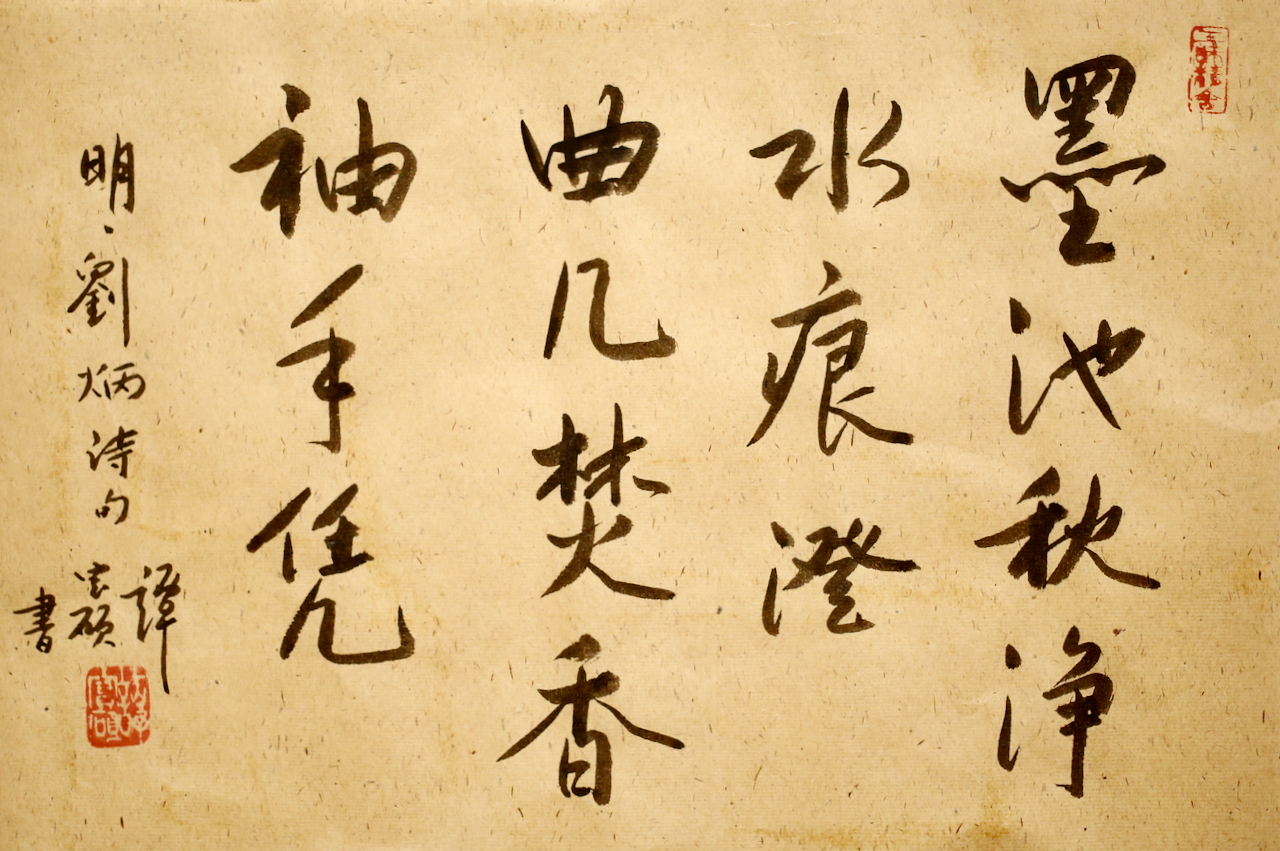 墨池秋净
水痕澄
曲几焚香
袖手凭
明、劉炳詩句
譚
書